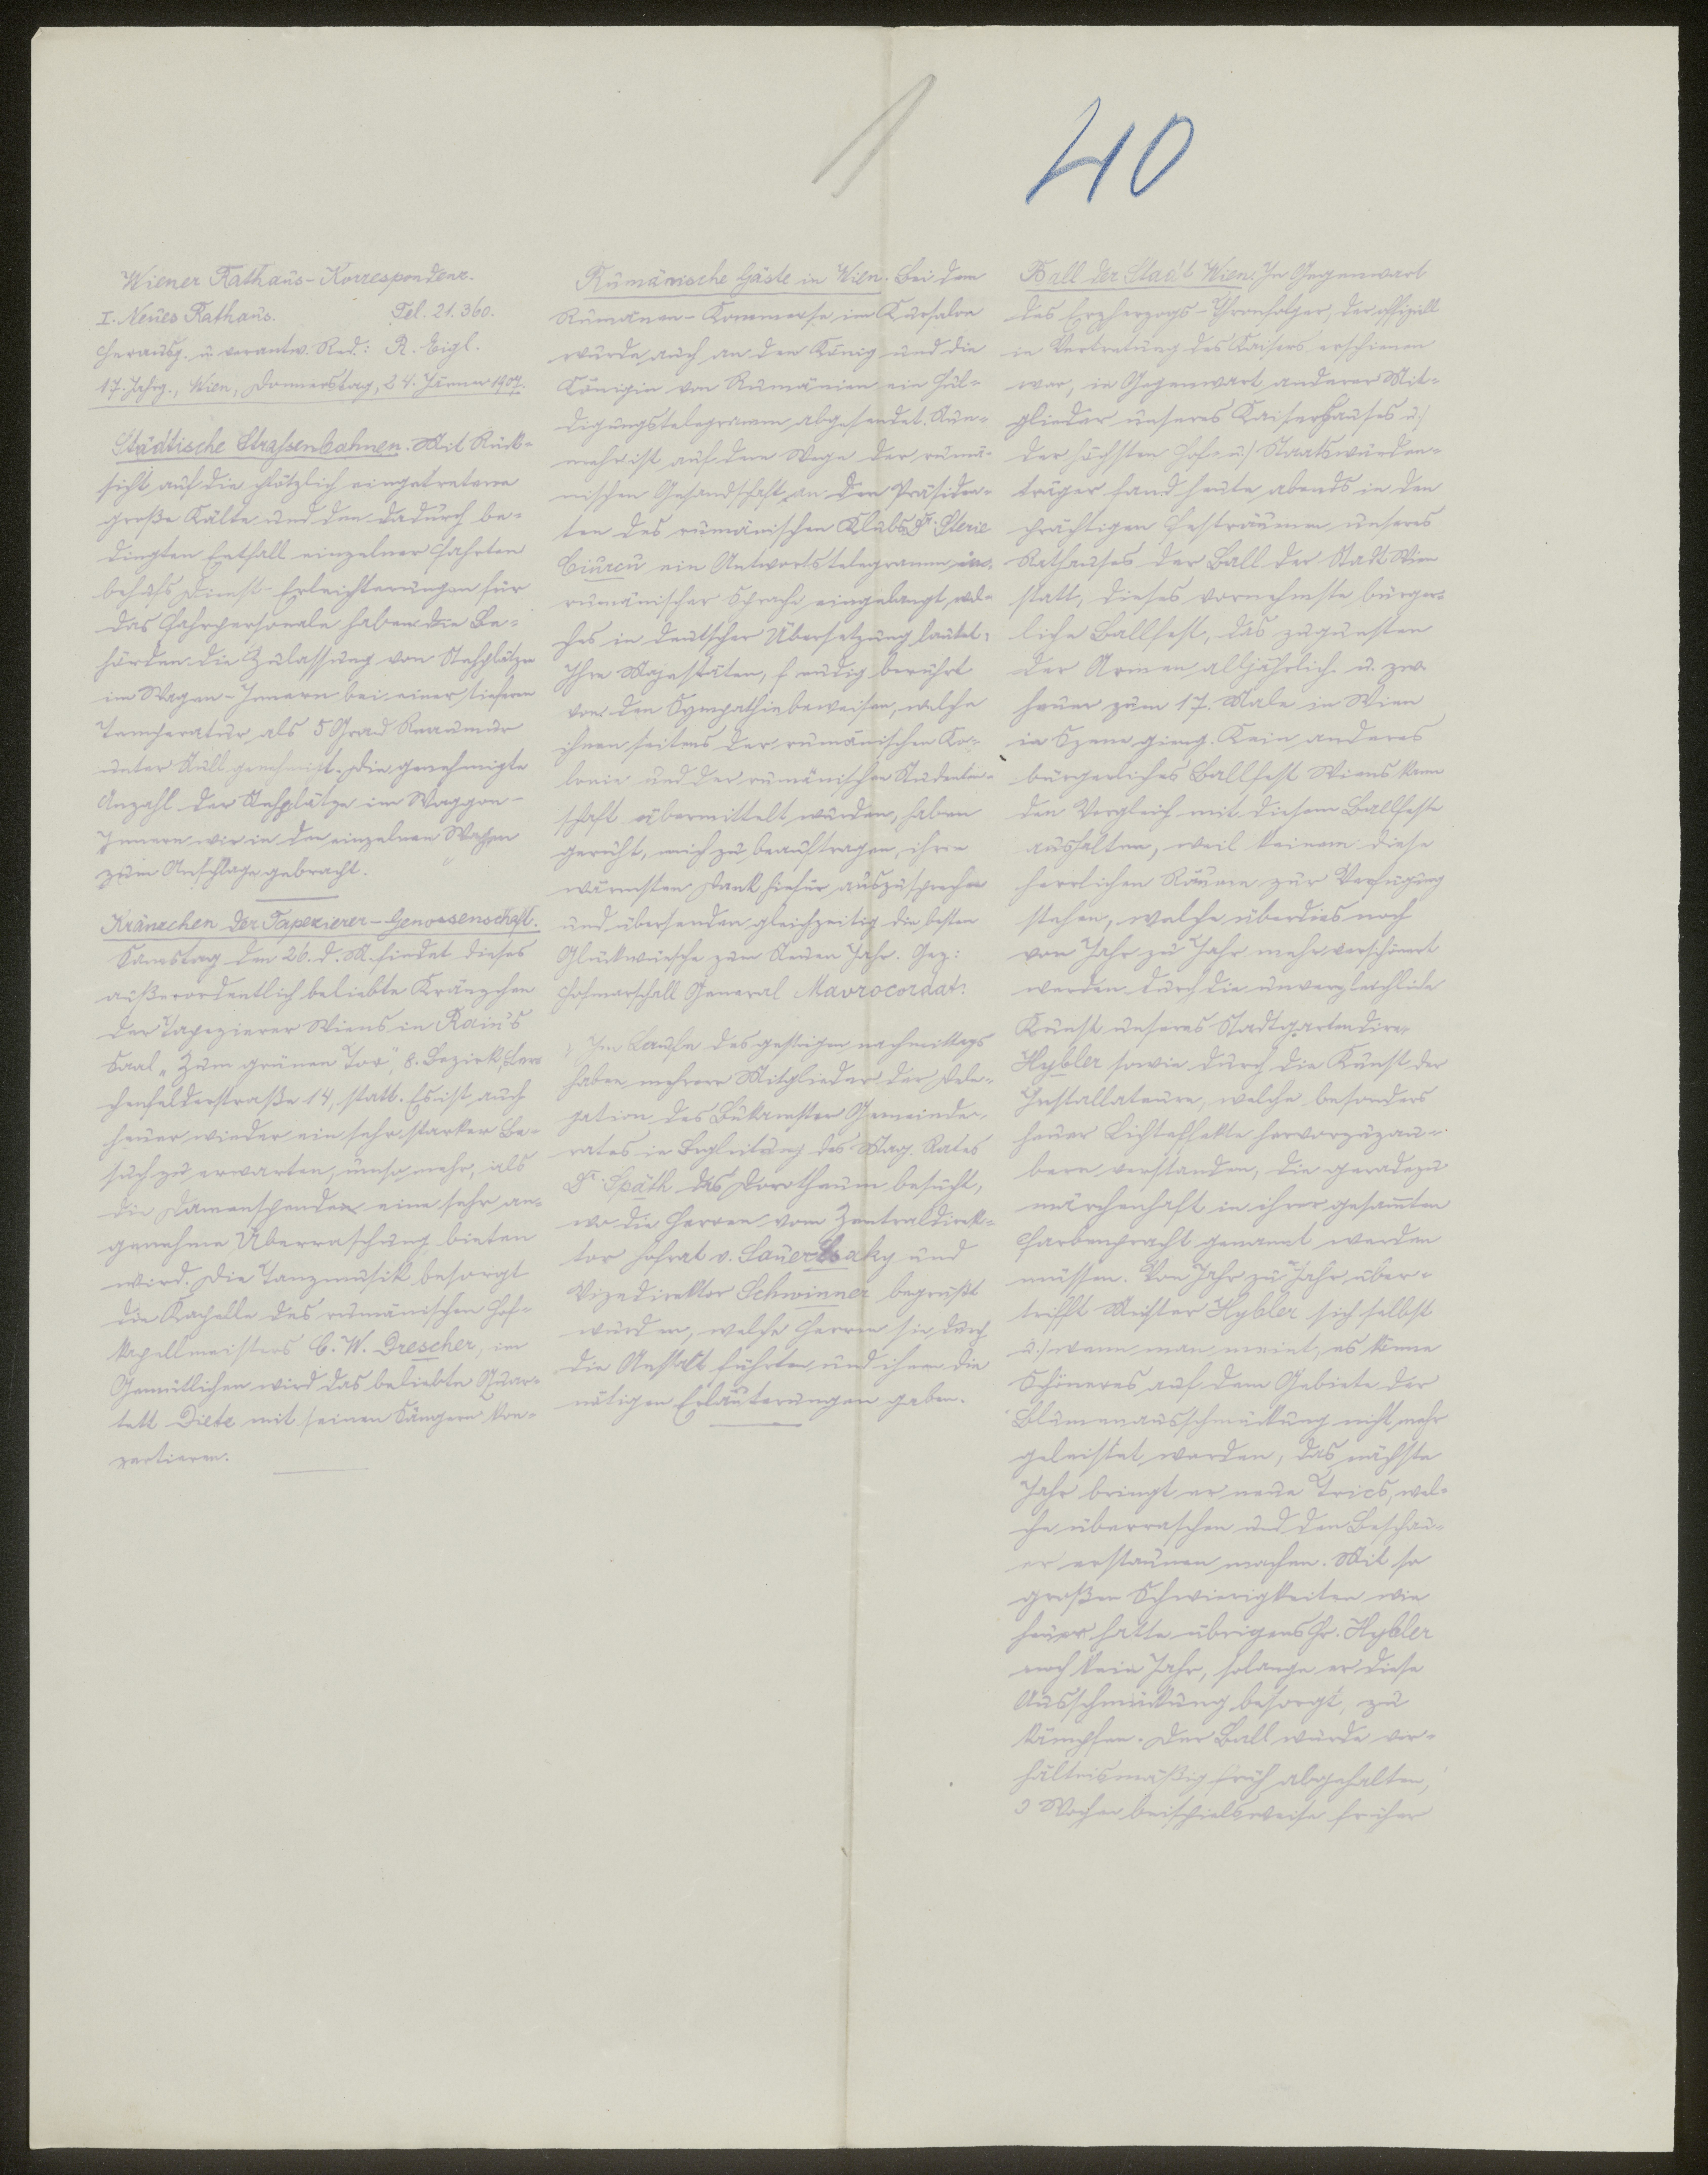 1
40
Wiener Rathaus-Korrespondenz.
I. Neues Rathaus. Tel. 21.360.
Herausg. u. verantw. Red.: R. Eigl.
17. Jahrg., Wien, Donnerstag, 24. Jänner 1907.
Städtische Strassenbahnen. Mit Rück-
sicht auf die plötzlich eingetretene
große Kälte und den dadurch be-
dingten Entfall einzelner Fahrten
behufs Dienst-Erleichterungen für
das Fahrpersonale haben die Be-
hörden die Zulassung von Stehplätzen
im Wagen-Innern bei einer tieferen
Temperatur als 5 Grad Reaumur
unter Null genehmigt. Die genehmigte
Anzahl der Stehplätze im Waggon-
Innern wir in den einzelnen Wagen
zum Anschlage gebracht.
Kränzchen der Tapezierer-Genossenschaft.
Samstag den 26. d. M. findet dieses
außerordentlich beliebte Kränzchen
der Tapezierer Wiens in Rain's
Saal "Zum grünen Tor", 8. Bezirk, Ler-
chenfelderstraße 14, statt. Es ist auch
heuer wieder ein sehr starker Be-
such zu erwarten, umso mehr, als
die Damenspenden eine sehr an-
genehme Überraschung bieten
wird. Die Tanzmusik besorgt
die Kapelle des rumänischen Hof-
kapellmeisters C. W. Drescher, im
Gemütlichen wird das beliebte Quar-
tett Dietz mit seinen Sängern kon-
zertieren.
Rumänische Gäste in Wien. Bei dem
Rumänen-Kommerse im Kursalon
wurde auch an den König und die
Königin von Rumänien ein Hul-
digungstelegramm abgesendet. Nun-
mehr ist auf dem Wege der rumä-
nischen Gesandschaft an den Präsiden-
ten des rumänischen Klubs Dr. Sterie
Ciurcu ein Antwortstelegramm in
rumänischer Sprache eingelangt, wel-
ches in deutscher Übersetzung lautet:
Ihre Majestäten, freudig berührt
von den Sympathiebeweisen, welche
ihnen seitens der rumänischen Ko-
lonie und der rumänischen Studenten-
schaft übermittelt wurden, haben
geruht, mich zu beauftragen, ihren
wärmsten Dank hiefür auszusprechen
und übersenden gleichzeitig die besten
Glückwünsche zum Neuen Jahr. Gez:
Hofmarschall General Mavrocordat.
Im Laufe des gestrigen nachmittags
haben mehrere Mitglieder der Dele-
gation des Bukarester Gemeinde-
rates in Begleitung des Mag. Rates
Dr. Späth das Dorotheum besucht,
wo die Herren vom Zentraldirek-
tor Hofrat v. Sauer Csaky und
Vizedirektor Schwinner begrüßt
wurden, welche Herren sie durch
die Anstalt führten und ihnen die
nötigen Erläuterungen gaben.
Ball der Stadt Wien. In Gegenwart
des Erzherzogs-Thronfolger, der offiziell
in Vertretung des Kaisers erschienen
war, in Gegenwart anderer Mit-
glieder unseres Kaiserhauses u.
der höchsten Hof- u. Staatswürden-
träger fand heute abends in den
prächtigen Festräumen unseres
Rathauses der Ball der Stadt Wien
statt, dieses vornehmste bürger-
liche Ballfest, das zugunsten
der Armen alljährlich u. zw.
heuer zum 17. Male in Wien
in Szene ging. Kein anderes
bürgerliches Ballfest Wiens kann
den Vergleich mit diesem Ballfeste
aushalten, weil keinem diese
herrlichen Räume zur Verfügung
stehen, welche überdies noch
von Jahr zu Jahr mehr verschönert
werden durch die unvergleichliche
Kunst unseres Stadtgartendire-
Hybler sowie durch die Kunst der
Installateure, welche besonders
heuer Lichteffekte hervorzuzau-
bern verstanden, die geradezu
märchenhaft in ihrer gesamten
Farbenpracht genannt werden
müssen. Von Jahr zu Jahr über-
trifft Meister Hybler sich selbst
u. wenn man meint, es könne
Schöneres auf dem Gebiete der
Blumenausschmückung nicht mehr
geleistet werden, das nächste
Jahr bringt er neue Trics, wel-
che überraschen und den Beschau-
er erstaunen machen. Mit so
großen Schwierigkeiten wie
heuer hatte übrigens Hr. Hybler
noch kein Jahr, solange er diese
Ausschmückung besorgt, zu
kämpfen. Der Ball wurde ver-
hältnismäßig früh abgehalten,
3 Wochen beispielsweise früher